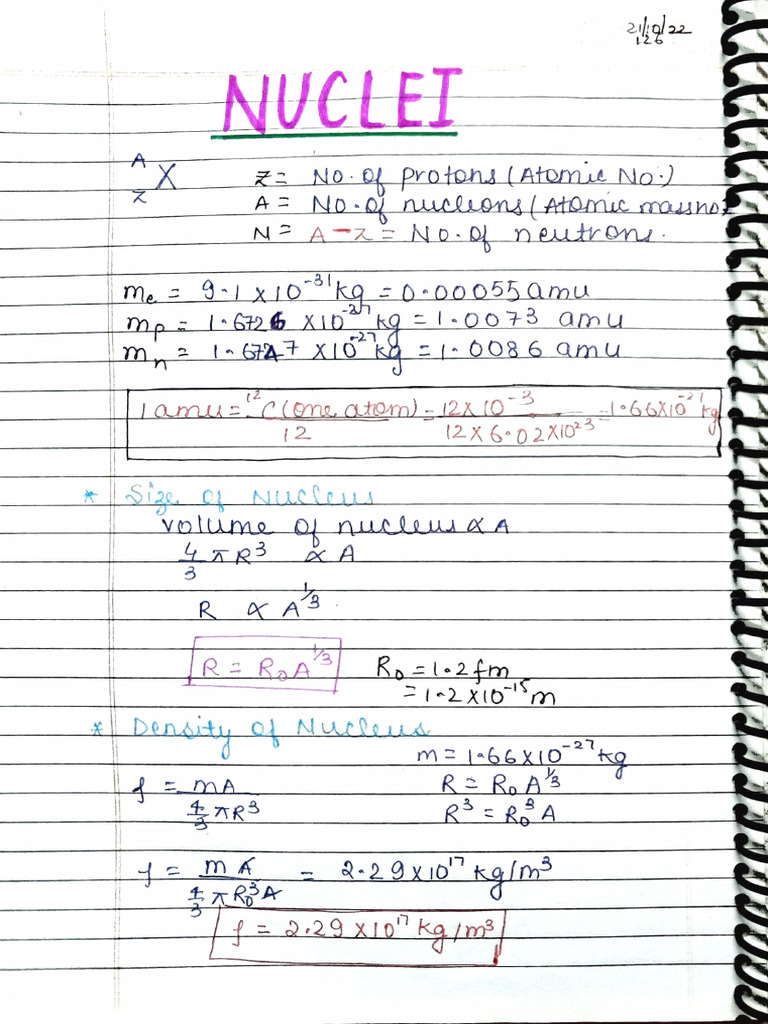 21/10/22
126
NUCLEI
A
Z X
Z = No. of protons (Atomic No.)
A = No. of nucleons (Atomic mass no.
N = A-Z = No. of neutrons.
me = 9.1 × 10⁻³¹ kg = 0.00055 amu
mp = 1.6726 × 10⁻²⁷ kg = 1.0073 amu
mn = 1.6747 × 10⁻²⁷ kg = 1.0086 amu
1 amu = ¹²C (one atom) / 12 = 12 × 10⁻³ / 12 × 6.02 × 10²³ = 1.66 × 10⁻²⁷ kg
* Size of Nucleus
Volume of nucleus ∝ A
4/3 π R³ ∝ A
R ∝ A^1/3.
R = R₀ A^1/3 R₀ = 1.2 fm
= 1.2 × 10⁻¹⁵ m
* Density of Nucleus
m = 1.66 × 10⁻²⁷ kg
ρ = mA / 4/3 π R³ R = R₀ A^1/3
R³ = R₀³ A
ρ = m A / 4/3 π R₀³ A = 2.29 × 10¹⁷ kg/m³
ρ = 2.29 × 10¹⁷ kg/m³